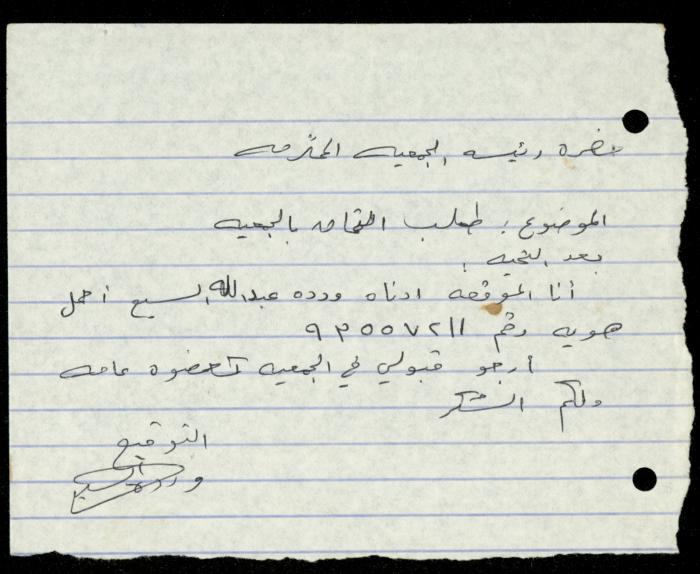 حضرة رئيسه الجمعيه المحترمه
الموضوع : طلب التحاق بالجمعيه
بعد التحيه :
أنا الموقعه ادناه ورده عبدالله السبع أحمل
هويه رقم ٩٣٥٥٧٢١١
أرجو قبولي في الجمعيه كعضوه عامه
ولكم الشكر
التوقيع
ورده السبع